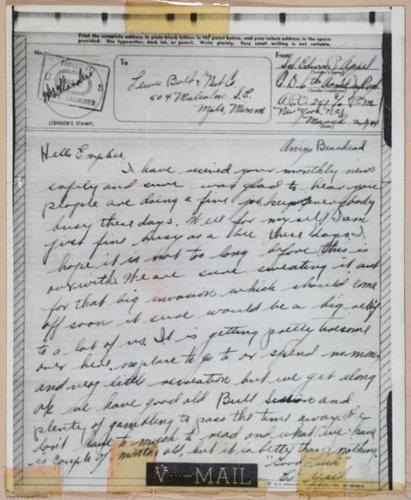 Print the complete address in plain block letters in the panel below, and your return address in the space
provided. Use typewriter, dark ink, or pencil. Write plainly. Very small writing is not suitable.
No.
To
From
PASSED BY
EXAMINER
U S
Lewis Bolt & Nut Co.
504 Malcolm S.E.
Mpls, Minnesota
Sgt Edward J.
(Sender's name)
(Sender's address)
New York N.Y.
March
(Date)
(CENSOR'S STAMP)
Anzio Beachead
Hello Emplees,
I have recived your monthly news
safety and sure was glad to hear you
people are doing a fine job keeps everybody
busy these days. Well for myself I am
just fine busy as a bee these days. I
hope it is not to long before this is
over with. We are sure sweating it out
for that big invasion which should come
off soon it sure would be a big relief
to a lot of us. It is getting pretty
over here no place to go to or spend no money
and very little recreation but we get along
ok we have good old Bull Session and
plenty of gambling to pass the time away. We
don't have to much to read and what we have
is couple of months old, but it is better than nothing
Good Luck
V...-MAIL